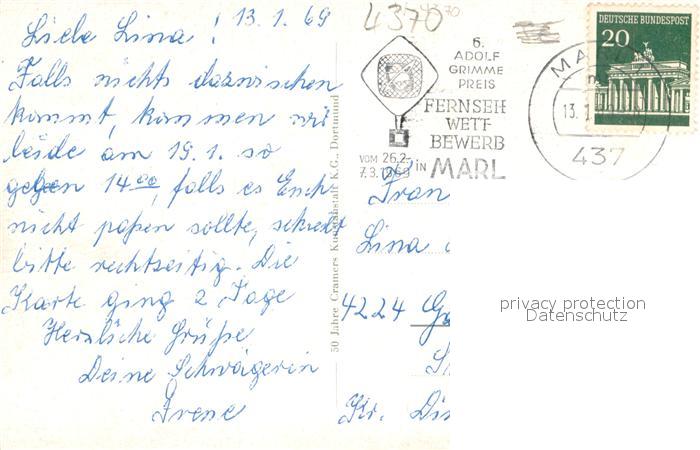 13. 1. 69
Liebe Lina!
Falls nichts dazwischen
kommt, kommen wir
beide am 19. 1. so
gegen 14 00, falls es Euch
nicht paßen sollte, schreibt
bitte rechtzeitig. Die
Karte ging 2 Tage
Herzliche Grüße
Deine Schwägerin
Irene
50 Jahre Cramers Kunstanstalt K.G., Dortmund
4370
6.
ADOLF
GRIMME
PREIS
FERNSEH
WETT
BEWERB
VOM 26.2.-
7.3.1969 IN MARL
DEUTSCHE BUNDESPOST
20
MA
13.1
437
Frau
Lina
4224
Kr. Dis
privacy protection
Datenschutz